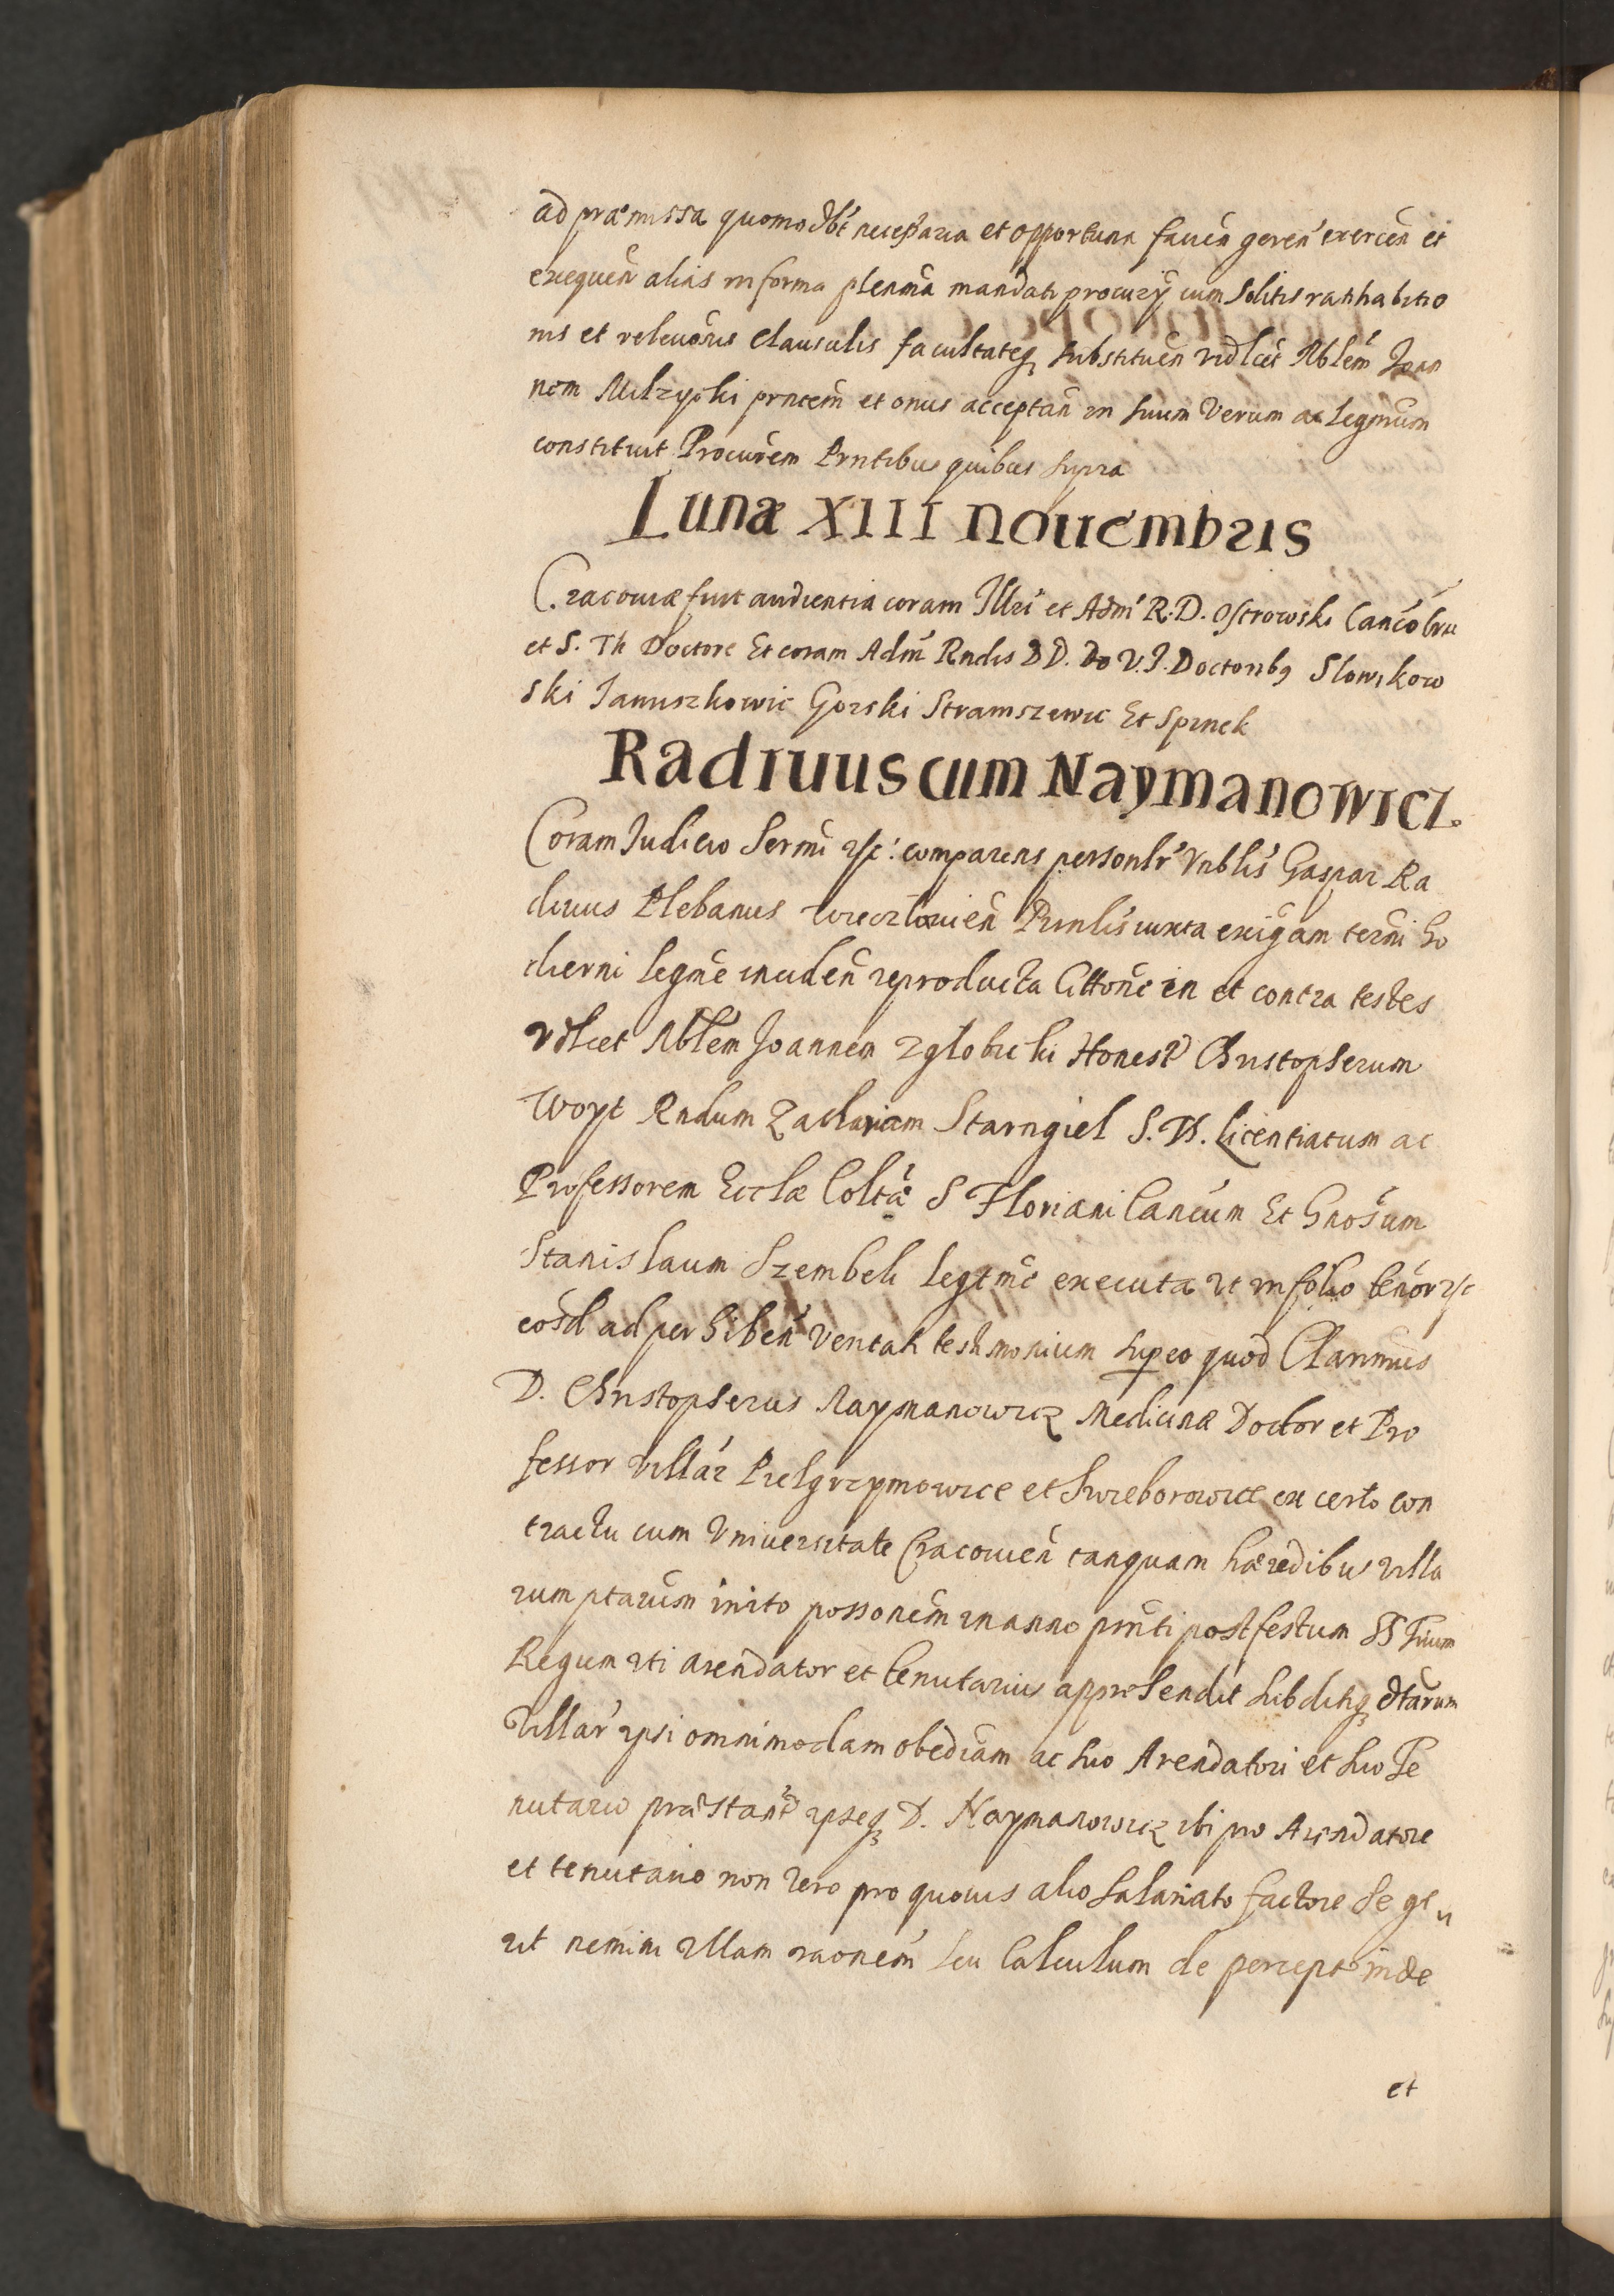 ad præmissa quomodlbt necessaria et opportuna facien geren exercen et
exequen aliis in forma plenaria mandati procurij cum Solitis ratihabitio
nis et relevonis Clausulis facultateq substituen vidlcet Nblem Joan
nem Milzycki prntem et onus acceptan in suum Verum ac Legmum
constituit Procurem Prntibus quibus supra
Lunæ XIII Nouembris
Cracouiæ fuit audientia coram Illri et Adm R. D. Ostrowski Canco Crac
et S. Th Doctore Et coram Adm Rndis DD. Do V. J. Doctoribq Slowikow
ski Januszkowic Gorski Stramszewic Et Spinek
Radiuus cum Naymanowicz.
Coram Judicio Sermi etc: comparens personlr Vnblis Gaspar Ra
diuus Plebanus Prinlis iuxta exigam termi ho
dierni legme inciden reproducta Citone in et contra testes
vdlicet Nblem Joannem Zglobicki Honest Christopherum
Woyt Rndum Zachariam Starngiel S. Th. Licentiatum ac
Professorem Ecclæ Coltæ S Floriani Cancum Et Gnosum
Stanislaum Szembek legtme executa ut in folio tenor etc
eosd ad perhiben Veritati testimonium sup eo quod Clarimus
D. Christopherus Naymanowicz Medicinæ Doctor et Pro
fessor Villar Pielgrzymowice et Swieborowice ex certo con
tractu cum Vniuersitate Cracouien tanquam hæredibus villa
rum ptarum inito possonem in anno prnti post festum SS Trium
Regum uti arendator et tenutarius apprehendit subditiq dtarum
Villar ipsi omnimodam obediam ac suo Arendatori et suo Te
nutario præstant ipseq D. Naymanowicz ibi pro Arendatore
et tenutario non vero pro quouis alio salariato factore se ge
rit nemini ullam raonem seu Calculum de percept inde
et